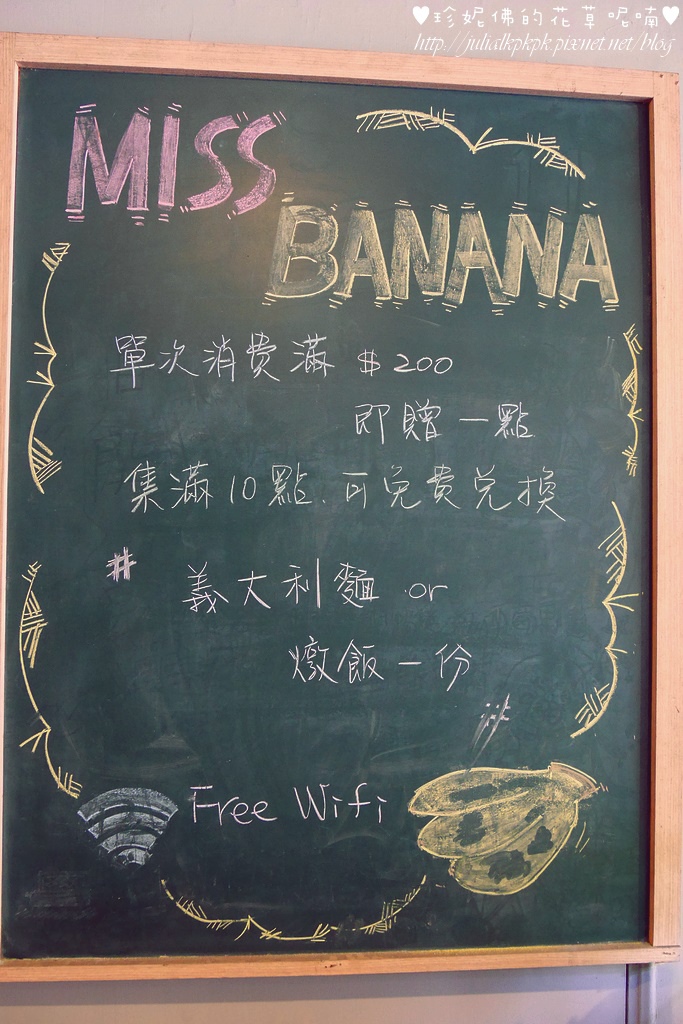 ♥珍妮佛的花草呢喃♥
http://julialkpkpk.pixnet.net/blog
MISS
BANANA
單次消費滿 $200
即贈一點
集滿10點.可免費兌換
# 義大利麵 or
燉飯一份
Free Wifi